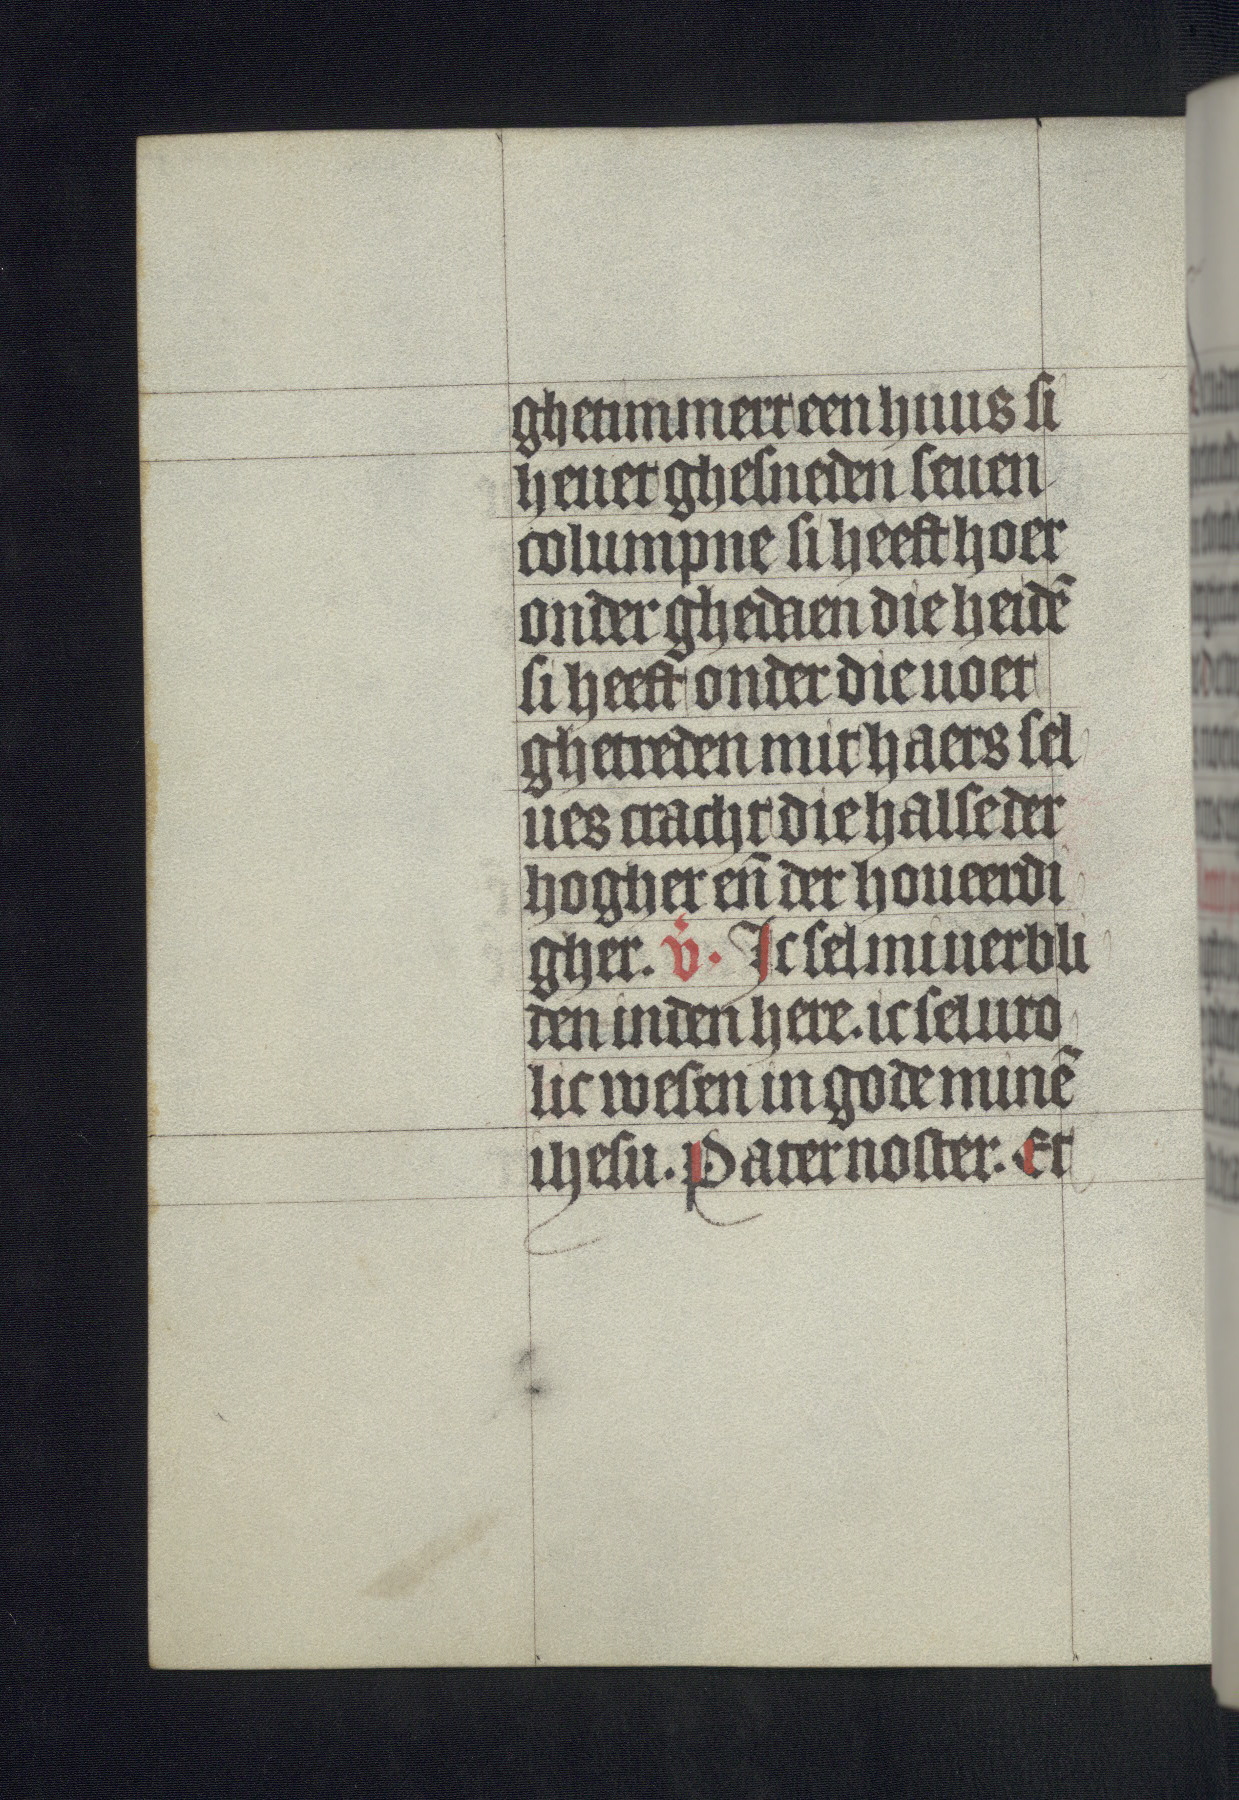 ghetimmert een huus si
heuet ghesneden seuen
columpne si heeft hoer
onder ghedaen die heidē
si heeft onder die uoet
ghetreden mit haers sel
ues cracht die halse der
hogher eñ der houeerdi
gher. v̊. Ic sel mi uerbli
den in den here. ic sel uro
lic wesen in gode minē
ihesu. Pater noster. Et